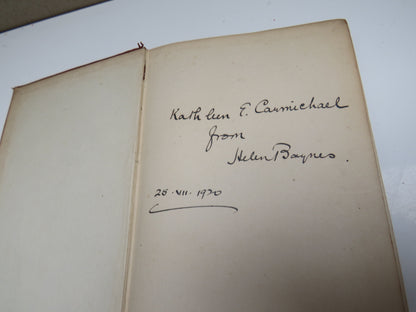 Kathleen E. Carmichael
from
Helen Baynes.
28·VII·1920